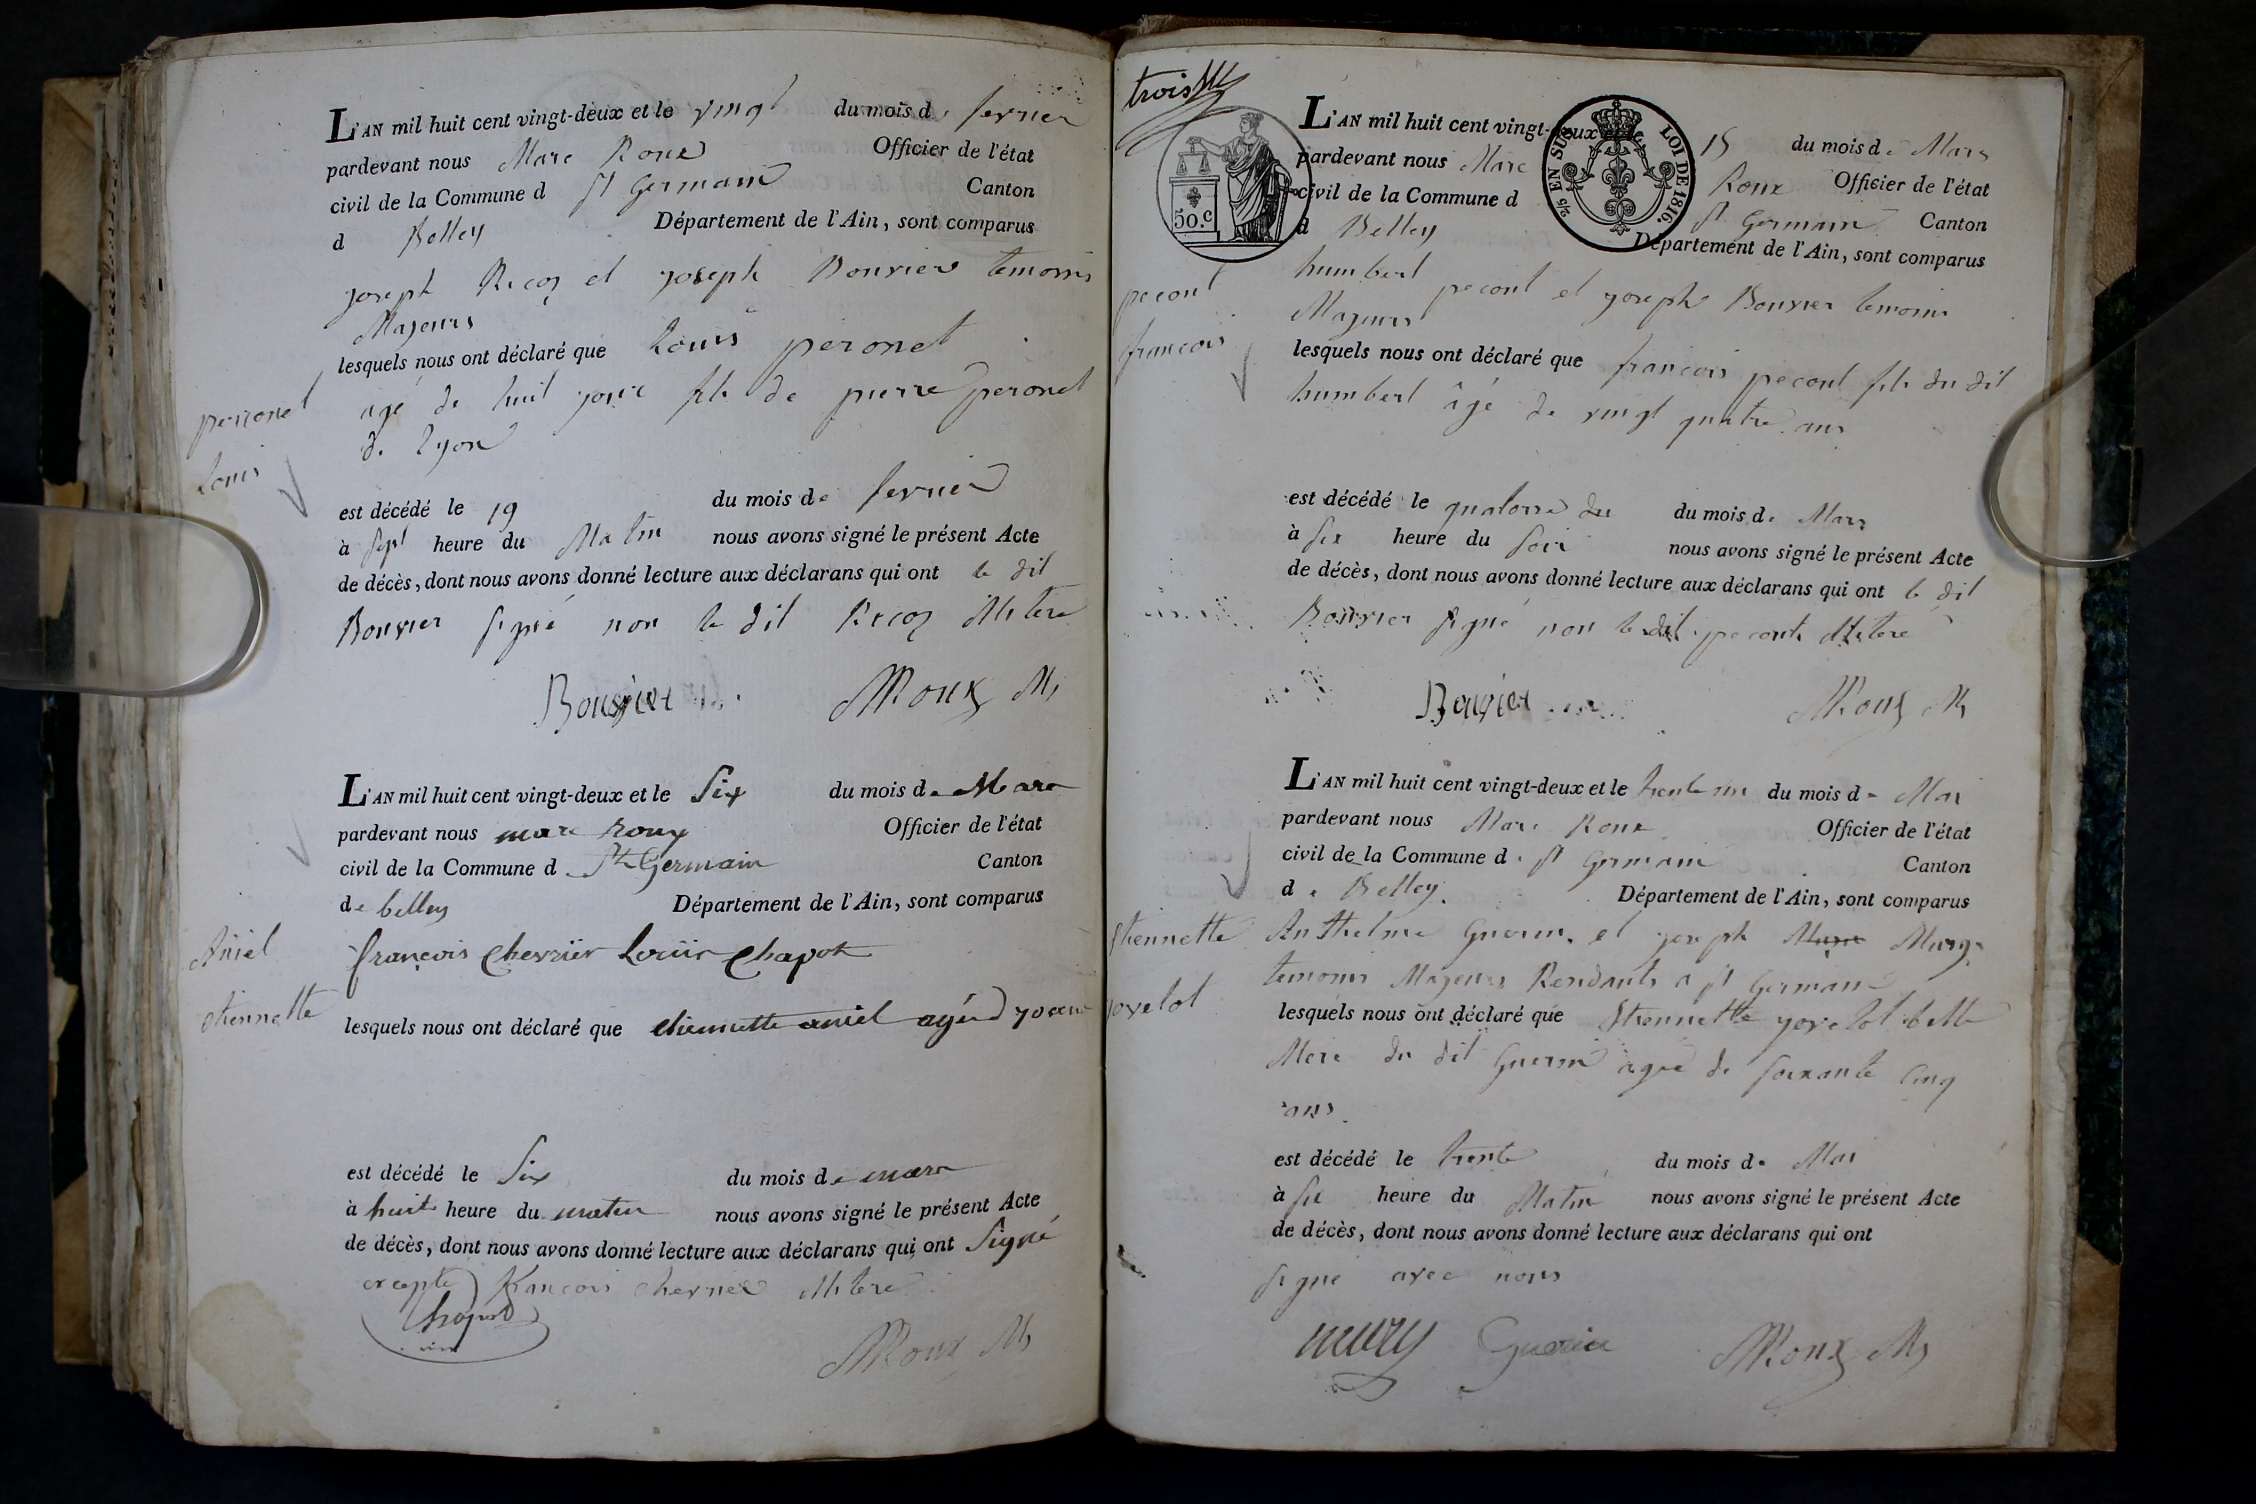 L'AN mil huit cent vingt-deux et le vingt du mois de fevrier
pardevant nous Marc Roux Officier de l'état
civil de la Commune d St Germain Canton
d Belley Département de l'Ain, sont comparus
joseph Recoz et joseph Bouvier temoins
Majeurs
lesquels nous ont déclaré que Louis peronet
agé de huit jour fils de pierre peronet
de Lyon
perronet
Louis
est décédé le 19 du mois de fevrier
à sept heure du Matin nous avons signé le présent Acte
de décès, dont nous avons donné lecture aux déclarans qui ont le dit
Bouvier signé non le dit Recoz illitere
Bouvier MRoux
L'AN mil huit cent vingt-deux et le Six du mois de Mars
pardevant nous marc Roux Officier de l'état
civil de la Commune d St Germain Canton
de belley Département de l'Ain, sont comparus
françois Chevrier Louis Chapot
Aniel
etiennette
lesquels nous ont déclaré que etiennette aniel agée d
est décédé le Six du mois de mars
à huit heure du matin nous avons signé le présent Acte
de décès, dont nous avons donné lecture aux déclarans qui ont Signé
excepté francois chevrier illitere
Chapot
MRoux
trois
50.c
2/5 EN SUS LOI DE 1816.
L'AN mil huit cent vingt-deux et le 15 du mois de Mars
pardevant nous Marc Roux Officier de l'état
civil de la Commune d St Germain Canton
d Belley Département de l'Ain, sont comparus
humbert pecout et joseph Bouvier temoins
Majeurs
pecout
francois
lesquels nous ont déclaré que francois pecout fils du dit
humbert âgé de vingt quatre ans
est décédé le quatorze du du mois de Mars
à six heure du soir nous avons signé le présent Acte
de décès, dont nous avons donné lecture aux déclarans qui ont le dit
Bouvier signé non le dit pecout illitere
Bouvier MRoux
L'AN mil huit cent vingt-deux et le trente un du mois de Mai
pardevant nous Marc Roux Officier de l'état
civil de la Commune de St Germain Canton
de Belley. Département de l'Ain, sont comparus
Anthelme Guerin et joseph
temoins Majeurs Residants a St Germain
Etiennette
jovelot
lesquels nous ont déclaré que Etiennette jovelot belle
Mere du dit Guerin agée de soixante cinq
ans.
est décédé le trente du mois de Mai
à six heure du Matin nous avons signé le présent Acte
de décès, dont nous avons donné lecture aux déclarans qui ont
signé avec nous
Guerin MRoux